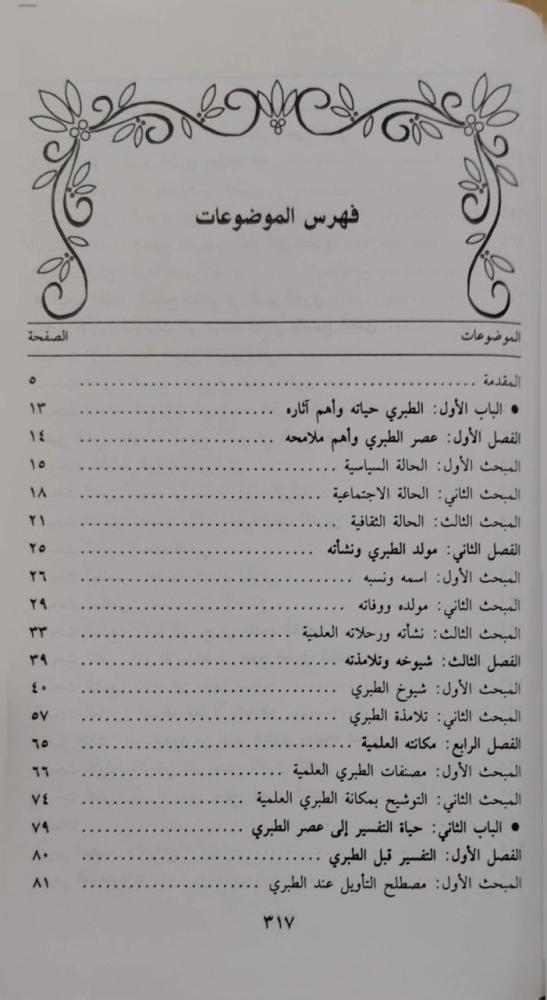 فهرس الموضوعات
الموضوعات الصفحة
المقدمة ............ ٥
• الباب الأول: الطبري حياته وأهم آثاره ............ ١٣
الفصل الأول: عصر الطبري وأهم ملامحه ............ ١٤
المبحث الأول: الحالة السياسية ............ ١٥
المبحث الثاني: الحالة الاجتماعية ............ ١٨
المبحث الثالث: الحالة الثقافية ............ ٢١
الفصل الثاني: مولد الطبري ونشأته ............ ٢٥
المبحث الأول: اسمه ونسبه ............ ٢٦
المبحث الثاني: مولده ووفاته ............ ٢٩
المبحث الثالث: نشأته ورحلاته العلمية ............ ٣٣
الفصل الثالث: شيوخه وتلامذته ............ ٣٩
المبحث الأول: شيوخ الطبري ............ ٤٠
المبحث الثاني: تلامذة الطبري ............ ٥٧
الفصل الرابع: مكانته العلمية ............ ٦٥
المبحث الأول: مصنفات الطبري العلمية ............ ٦٦
المبحث الثاني: التوشيح بمكانة الطبري العلمية ............ ٧٤
• الباب الثاني: حياة التفسير إلى عصر الطبري ............ ٧٩
الفصل الأول: التفسير قبل الطبري ............ ٨٠
المبحث الأول: مصطلح التأويل عند الطبري ............ ٨١
٣١٧